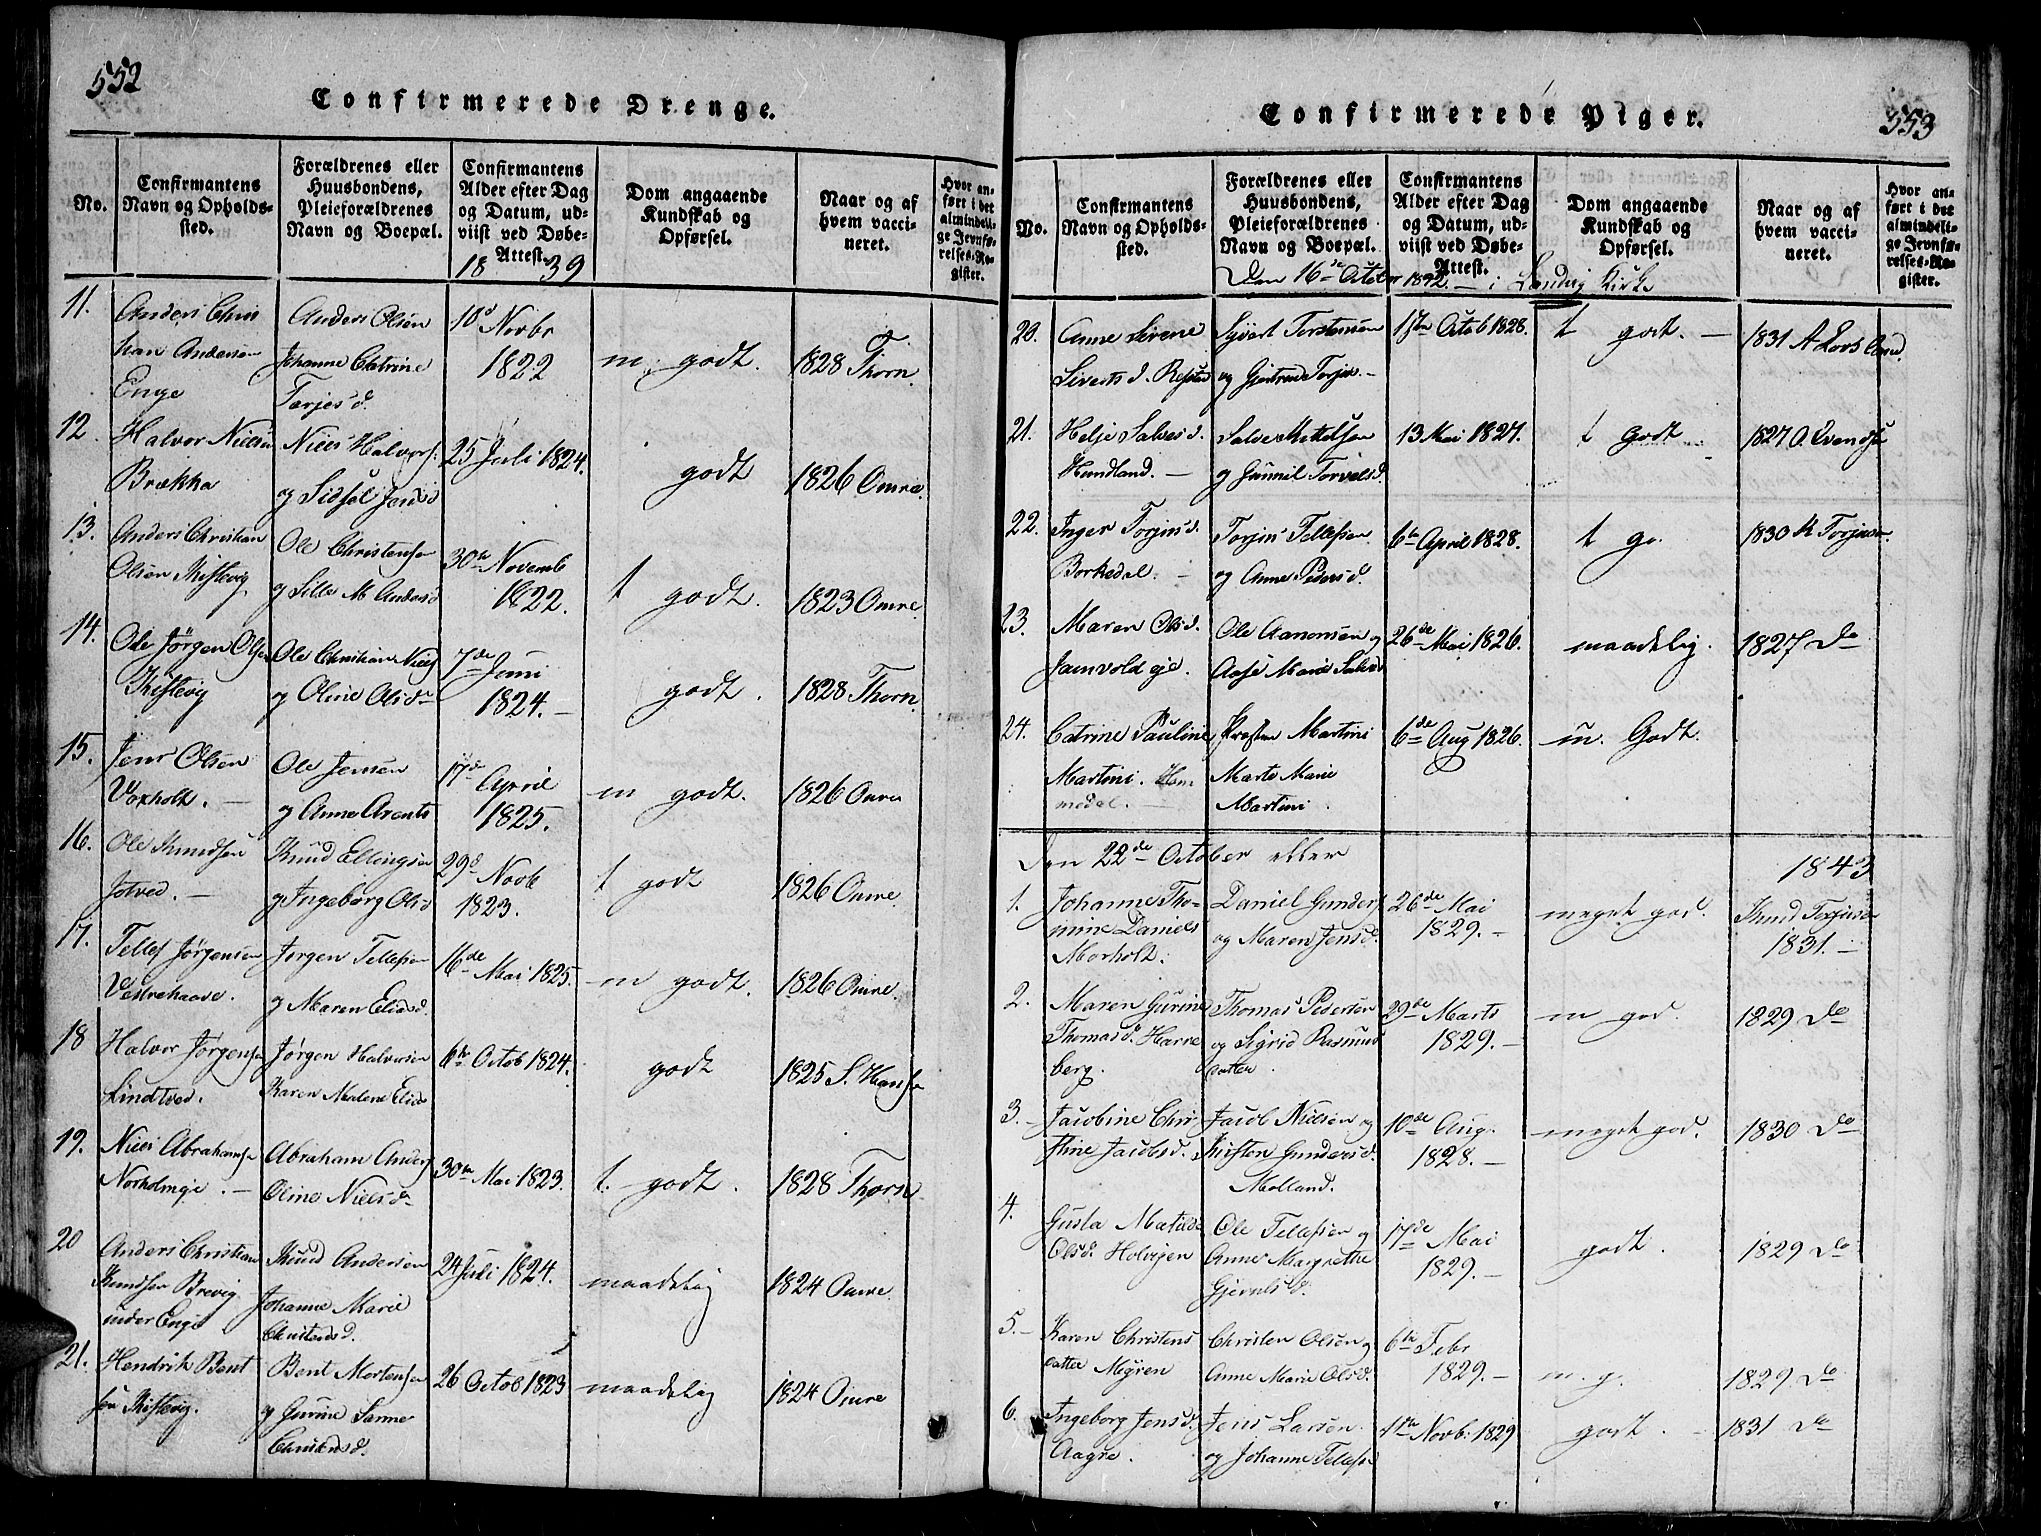 552
Confirmerede Drenge.
No.
Confirmantens
Navn og Opholds-
sted.
Forældrenes eller
Huusbondens,
Pleieforældrenes
Navn og Boepæl.
Confirmantens
Alder efter Dag
og Datum, ud-
viist ved Døbe-
Attest.
18 39
Dom angaaende
Kundskab og
Opførsel.
Naar og af
hvem vacci-
neret.
Hvor an-
ført i det
almindeli-
ge Jevnfø-
relses-Re-
gister.
11.
Anders Chris
tian Andersen
Enge
Anders Olsen
Johanne Catrine
Tarjes d.
10d Novbr
1822
m. godt.
1828 Thorn
12.
Halvor Nielsen
Brække
Niels Halvors.
og Sidsel Jensd
25 Juli 1824.
godt
1826 Omre.
13.
Anders Christian
Olsen Kistevig
Ole Christensen
og Sille M Andersd
30te Novemb
1822.
t godt.
1823 Omre
14.
Ole Jörgen Olsen
Kistevig
Ole Christian Niels
og Oline Olsd
7de Juni
1824.
godt.
1828 Thorn
15.
Jens Olsen
Voxholt.
Ole Jensen
og Anne Arents
17d April
1825.
m godt.
1826 Omre
16.
Ole Knudsen
Jotved.
Knud Ellingsen
og Ingeborg Olsd
29d Novb
1823.
t godt
1826 Omre.
17.
Tellef Jørgensen
Vestrehaave.
Jørgen Tellefsen
og Maren Eliasd.
16de Mai 1825.
m godt.
1826 Omre.
18
Halvor Jørgensen
Lindtved.
Jørgen Halvorsen
Karen Malene Elias
6te Octob 1824.
godt
1825 S. Hansen
19.
Niels Abrahamsen
Norholmeje.
Abraham Anders
Oline Nielsd
30te Mai 1823.
t. godt.
1828 Thorn
20
Anders Christian
Knudsen Brevig
under Enge
Knud Andersen
Johanne Marie
Christensd.
24 Juli 1824.
maadelig
1824 Omre.
21.
Hendrik Bent
sen Kistevig.
Bent Mortensen
og Gurine Sanne
Christensd.
26 Octob 1823
maadelig
1824 Omre
Confirmerede Piger.
553
No.
Confirmantens
Navn og Opholds-
sted.
Forældrenes eller
Huusbondens,
Pleieforældrenes
Navn og Boepæl.
Confirmantens
Alder efter Dag
og Datum, ud-
viist ved Døbe-
Attest.
Dom angaaende
Kundskab og
Opførsel.
Naar og af
hvem vacci-
neret.
Hvor an-
ført i det
almindeli-
ge Jevnfø-
relses-Re-
gister.
Den 16de October 1842. i Landvig Kirke
20.
Anne Sirene
Siverts d.
Syvert Torstensen
og Gjertrud Torjus.
1ste Octob 1828.
t godt.
1831 A
21.
Helje Salves d.
Hundland.
Salve Kittelsen
og Gunnil Torvelsd.
13 Mai 1827.
t godt
1827 O. Evendsen
22.
Inger Torjus d.
Borkedal.
Torjus Tellefsen
og Anne Peders d.
6te April 1828.
t go.
1830 K Torjusen
23.
Maren Olsd.
Jamvold eje.
Ole Aanonsen og
Aase Marie Salvesd
26de Mai 1826.
maadelig.
1827 Do
24.
Catrine Pauline
Martini. Hom
medal.
Kresten Martini
Marte Marie
Martini.
6de Aug 1826.
m. Godt.
Den 22de October
1843
1.
Johanne Tho-
mine Daniels
Morholt.
Daniel Gunders
og Maren Jensd.
26de Mai
1829.
meget god.
Knud Torjusen
1831.
2.
Maren Gurine
Thomasd. Harre
berg.
Thomas Pedersen
og Sigrid Rasmus
datter.
29de Marts
1829.
m god.
1829 Do
3.
Jacobine Chri
stine Jacobsd.
Jacob Nielsen og
Kirsten Gundersd.
Molland.
10de Aug.
1828.
meget god.
1830 Do
4.
Gusta Matilde
Olsd. Holvigen
Ole Tellefsen og
Anne Margrethe
Gjeruls d.
17de Mai
1829.
godt.
1829 Do
5.
Karen Christens
datter Myren
Christen Olsen og
Anne Marie Olsd.
6te Febr
1829.
m. g.
1829 Do
6.
Ingeborg Jensd.
Aagre.
Jens Larsen
og Johanne Tellefs
1te Novb. 1829
godt.
1831 Do